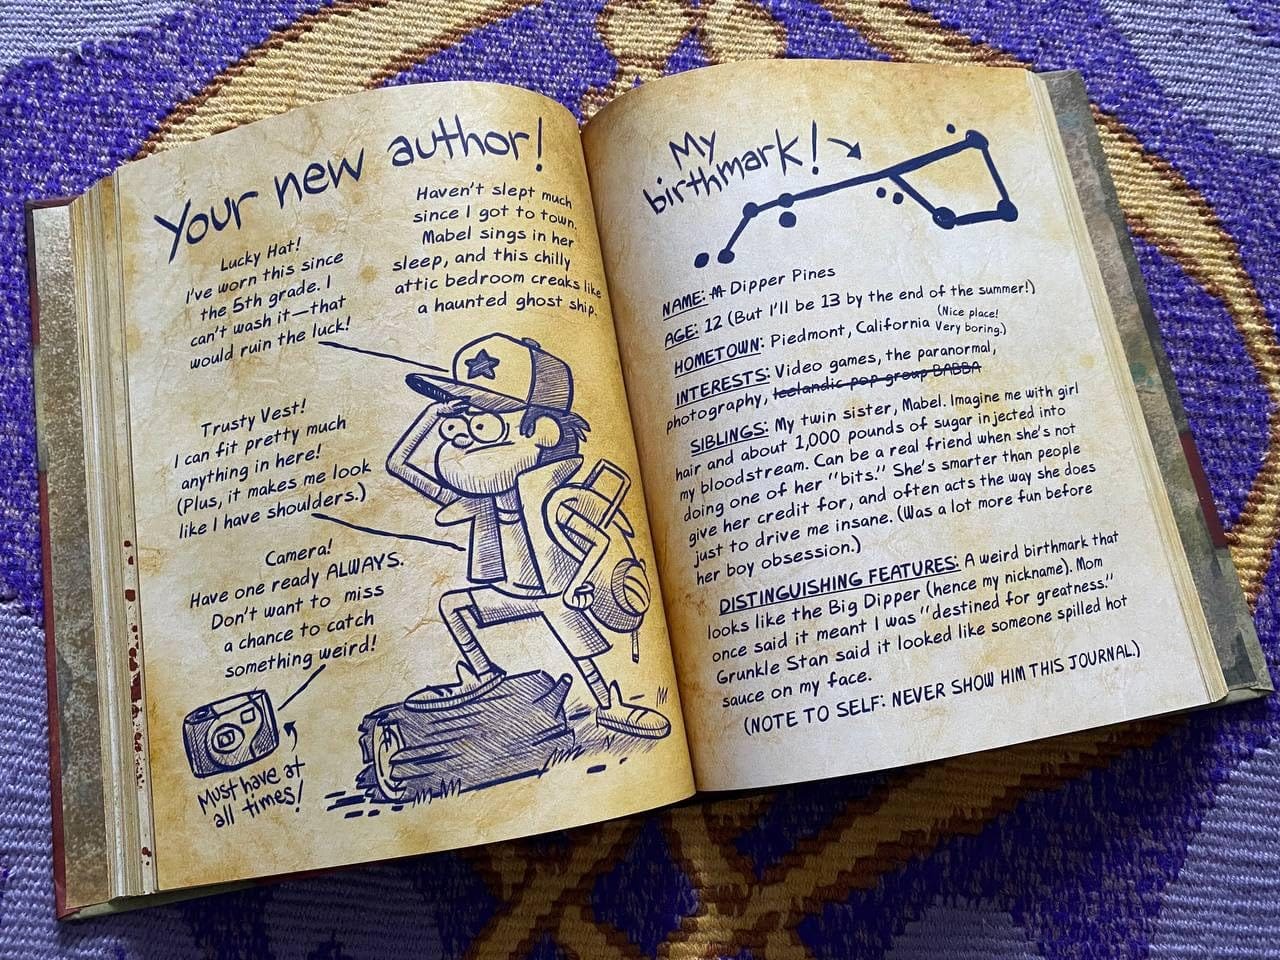 Your new author!
Haven't slept much
since I got to town.
Mabel sings in her
sleep, and this chilly
attic bedroom creaks like
a haunted ghost ship.
Lucky Hat!
I've worn this since
the 5th grade. I
can't wash it—that
would ruin the luck!
Trusty Vest!
I can fit pretty much
anything in here!
(Plus, it makes me look
like I have shoulders.)
Camera!
Have one ready ALWAYS.
Don't want to miss
a chance to catch
something weird!
Must have at
all times!
My
birthmark!
NAME: M Dipper Pines
AGE: 12 (But I'll be 13 by the end of the summer!)
HOMETOWN: Piedmont, California (Nice place!
Very boring.)
INTERESTS: Video games, the paranormal,
photography, Icelandic pop group BABBA
SIBLINGS: My twin sister, Mabel. Imagine me with girl
hair and about 1,000 pounds of sugar injected into
my bloodstream. Can be a real friend when she's not
doing one of her "bits." She's smarter than people
give her credit for, and often acts the way she does
just to drive me insane. (Was a lot more fun before
her boy obsession.)
DISTINGUISHING FEATURES: A weird birthmark that
looks like the Big Dipper (hence my nickname). Mom
once said it meant I was "destined for greatness."
Grunkle Stan said it looked like someone spilled hot
sauce on my face.
(NOTE TO SELF: NEVER SHOW HIM THIS JOURNAL.)